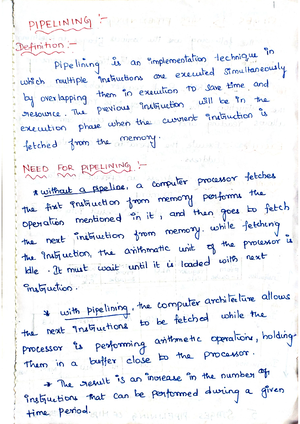 PIPELINING :-
Definition :-
Pipelining is an implementation technique in
which multiple instructions are executed simultaneously
by overlapping them in execution to save time and
resource. The previous instruction will be in the
execution phase when the current instruction is
fetched from the memory.
NEED FOR PIPELINING :-
* without a pipeline, a computer processor fetches
the first instruction from memory performs the
operation mentioned in it, and then goes to fetch
the next instruction from memory. while fetching
the instruction, the arithmatic unit of the processor is
Idle. It must wait until it is loaded with next
instruction.
* with pipelining, the computer architecture allows
the next instructions to be fetched while the
processor is performing arithmetic operations, holding
Them in a buffer close to the processor.
* The result is an increase in the number of
instructions that can be performed during a given
time period.